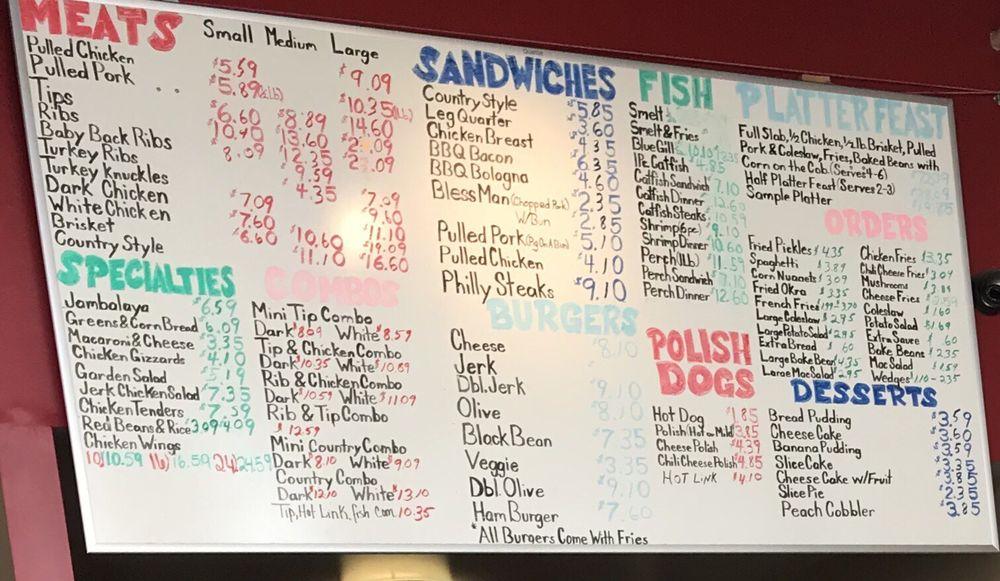 MEATS Small Medium Large
Pulled Chicken $5.59 $9.09
Pulled Pork $5.89 $10.35
Tips $6.60 $8.89 $14.60
Ribs
Baby Back Ribs
Turkey Ribs
Turkey Knuckles
Dark Chicken
White Chicken
Brisket
Country Style
SPECIALTIES
Jambalaya $6.59
Greens & Corn Bread $6.09
Macaroni & Cheese $3.35
Chicken Gizzards $4.10
Garden Salad $5.19
Jerk Chicken Salad $7.35
Chicken Tenders $7.59
Red Beans & Rice 3.09/4.09
Chicken Wings
10/10.59 16/16.59 24/24.59
COMBOS
Mini Tip Combo
Dark $8.09 White $8.59
Tip & Chicken Combo
Dark $10.35 White $10.89
Rib & Chicken Combo
Dark $10.59 White $11.09
Rib & Tip Combo
$12.59
Mini Country Combo
Dark $8.10 White $9.09
Country Combo
Dark $12.10 White $13.10
Tip, Hot Link, fish com. 10.35
SANDWICHES
Country Style $5.85
Leg Quarter $3.60
Chicken Breast $4.35
BBQ Bacon $6.35
BBQ Bologna $4.60
Bless Man (Chopped Pork) $2.35
W/Bun $2.85
Pulled Pork (Pig On A Bun) $5.10
Pulled Chicken $4.10
Philly Steaks $9.10
BURGERS
Cheese $8.10
Jerk
Dbl. Jerk $9.10
Olive $8.10
Black Bean $7.35
Veggie $3.35
Dbl. Olive $9.10
Ham Burger $7.60
*All Burgers Come With Fries
FISH
Smelt
Smelt & Fries
Blue Gill
1 Pc. Catfish 4.85
Catfish Sandwich 7.10
Catfish Dinner 12.60
Catfish Steaks 10.59
Shrimp (6pc) $9.10
Shrimp Dinner 10.60
Perch (1lb) $11.59
Perch Sandwich $7.10
Perch Dinner 12.60
POLISH DOGS
Hot Dog $1.85
Polish (Hot or Mild) $3.85
Cheese Polish $4.39
Chili Cheese Polish $4.85
HOT LINK $4.10
PLATTER FEAST
Full Slab, ½ Chicken, ½ lb. Brisket, Pulled
Pork & Coleslaw, Fries, Baked Beans with
Corn on the Cob. (Serves 4-6)
Half Platter Feast (Serves 2-3)
Sample Platter
ORDERS
Fried Pickles $4.35
Spaghetti $3.89
Corn Nuggets $3.09
Fried Okra $3.35
French Fries
Large Coleslaw $2.95
Large Potato Salad $2.95
Extra Bread $.60
Large Bake Bean $4.35
Large Mac Salad $2.95
Chicken Fries $3.35
Chili Cheese Fries $3.09
Mushrooms $3.89
Cheese Fries $2.59
Coleslaw $1.60
Potato Salad $1.69
Extra Sauce $.60
Bake Beans $2.35
Mac Salad $1.59
Wedges $1.10-2.35
DESSERTS
Bread Pudding $3.59
Cheese Cake $3.60
Banana Pudding $3.59
Slice Cake $3.35
Cheese Cake w/Fruit $3.85
Slice Pie $2.35
Peach Cobbler $3.85